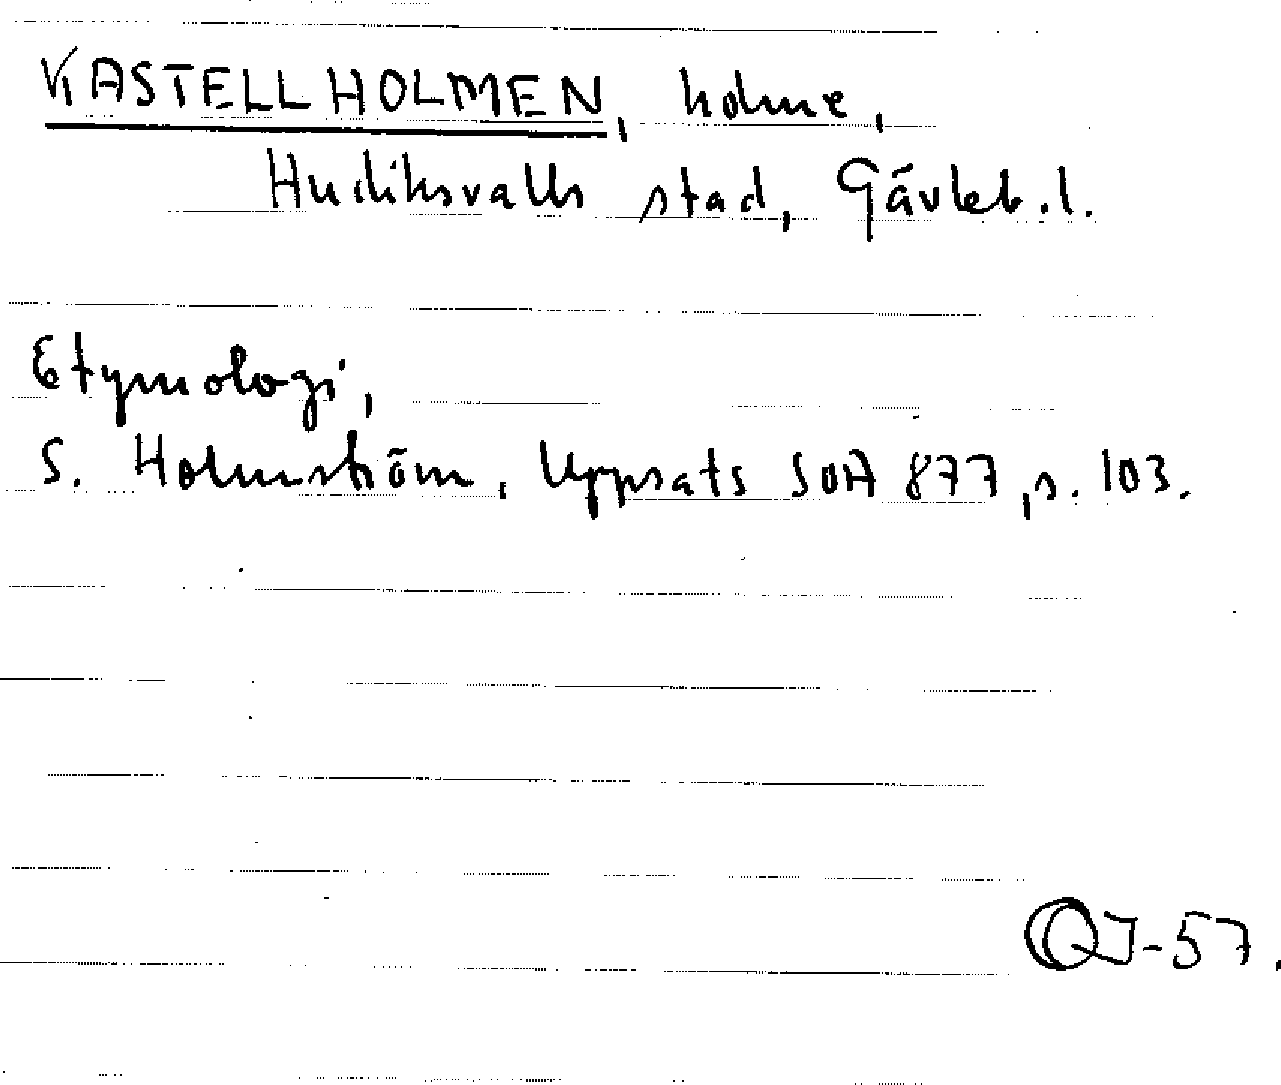 KASTELLHOLMEN, holme,
Hudiksvalls stad, Gävleb.l.
Etymologi,
S. Holmström, Uppsats SOA 877, s. 103.
QJ-57.